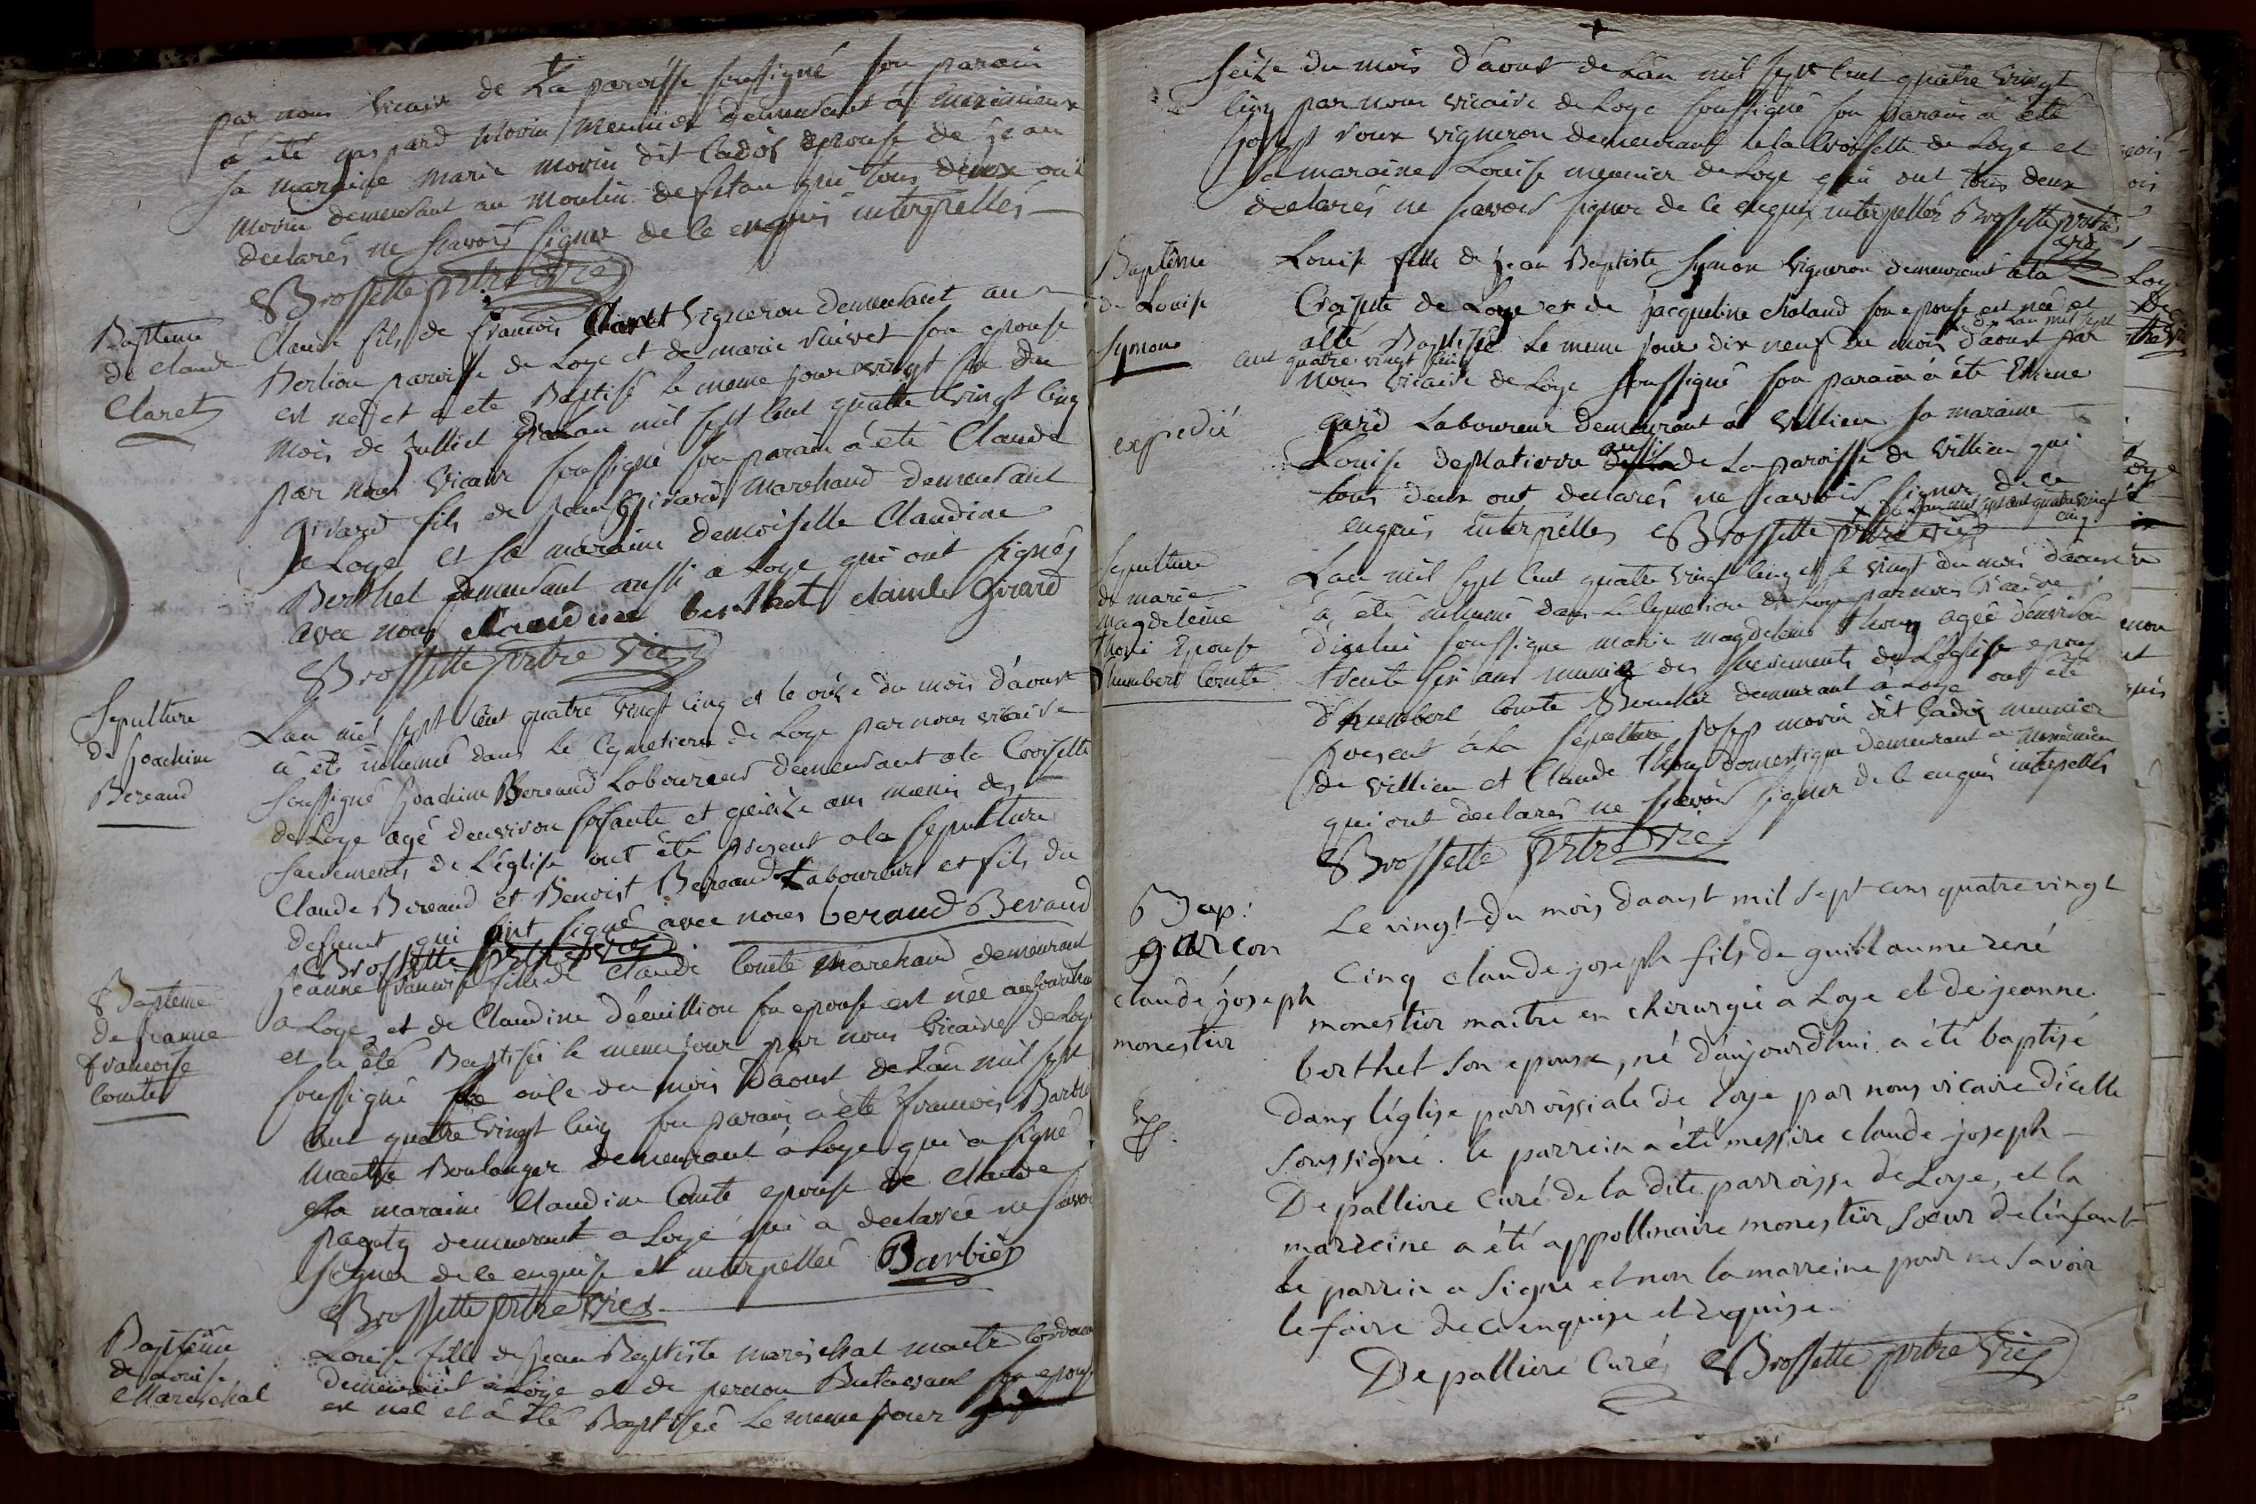 par nous vicaire de La paroisse soussigné son parain
à été gaspard Morin meunier demeurant à meximieux
sa maraine marie morin dit Cadot epouse de jean
morin demeurant au moulin de qui tous deux ont
declarés ne scavoir signer de ce enquis interpellés
Brossette prtre vic
Bapteme
de claude
Claret
Claude fils de francois Claret vigneron demeurant au
Berlion paroisse de Loye et de marie son epouse
est né et a ete Baptisé le meme jour vingt six du
mois de Julliet de Lan mil sept cent quatre vingt cinq
par nous vicaire soussigné son parain à été Claude
girard fils de jean girard marchand demeurant
a Loye et sa maraine demoiselle Claudine
Berthet demeurant aussi a Loye qui ont signés
avec nous claudine berthet claude Girard
Brossette prtre vic
Sepulture
de Joachim
Bereaud
Lan mil sept cent quatre vingt cinq et le onze du mois d'aoust
a été inhumé dans le cymetiere de Loye par nous vicaire
soussigné Joachim Bereaud Laboureur demeurant a la Croisette
de Loye agé denviron soisante et quinze ans munis des
sacrements de L'église ont été present a la sepulture
Claude Bereaud et Benoist Bereaud Laboureurs et fils du
defunt qui ont signé avec nous beraud Beraud
Brossette prtre vic
Bapteme
de jeanne
francoise
Comte
jeanne francoise fille de Claude Comte Marchand demeurant
a Loye et de Claudine son epouse est née
et a été Baptisée le meme jour par nous vicaire de Loye
soussigné le onze du mois d'aoust de Lan mil sept
cent quatre vingt cinq son parain a été francois
maitre Boulanger demeurant à Loye qui a signé
sa maraine Claudine Comte epouse de Claude
demeurant a Loye qui a declarée ne savoir
signer de ce enquise et interpellée Barbier
Brossette prtre vic
Bapteme
de Louise
Mareschal
Louise fille de jean Baptiste mareschal maitre
demeurant a Loye et de pernon Butavant son epouse
est née et à été Baptisée Le meme jour
seize du mois d'aoust de Lan mil sept cent quatre vingt
cinq par nous vicaire de Loye soussigné son parain a été
vigneron demeurant a la Croisette de Loye et
sa maraine Louise meunier de Loye qui ont tous deux
declarés ne scavoir signer de ce enquis interpellés Brossette prtre
vic
Baptême
de Louise
Symon
expedié
Louise fille de jean Baptiste Symon vigneron demeurant a la
de Loye et de jacqueline chaland son epouse est née et
été Baptisée Le meme jour dix neuf du mois d'aoust de Lan mil sept
cent quatre vingt cinq par
nous vicaire de Loye soussigné son parain à été Etiene
Laboureur demeurant à villieu sa maraine
Louise deplatierre aussi de La paroisse de villieu qui
tous deux ont declarés ne scavoir signer de ce
enquis interpellés Brossette prtre vic
de Lan mil sept cent quatre vingt
cinq
Sepulture
de marie
magdeleine
Epouse
humbert Comte
Lan mil sept cent quatre vingt cinq et le vingt du mois d'aoust
a été inhumé dans le cymetiere de Loye par nous vicaire
dicelui soussigné marie magdeleine agée d'environ
trente six ans munie des sacrements de L'église epouse
d'humbert Comte demeurant à Loye ont été
present à La sepulture josep morin dit Cadot meunier
de villieu et Claude domestique demeurant a meximieux
qui ont declarés ne scavoir signer de ce enquis interpellés
Brossette prtre vic
Bap:
garcon
claude joseph
monestier
Exp.
Le vingt du mois daoust mil sept cens quatre vingt
cinq claude joseph fils de guillaume rené
monestier maitre en chirurgie a Loye et de jeanne
berthet son epouse, né d'aujourdhui a été baptisé
dans léglise parroissiale de loye par nous vicaire dicelle
soussigné. le parrein a été messire claude-joseph
Depalliere curé de la dite parroisse de Loye, et la
marreine a été appollinaire monestier soeur de lenfant
le parrein a signé et non la marreine pour ne savoir
le faire de ce enquise et requise.
Depalliere Curé Brossette prtre vic